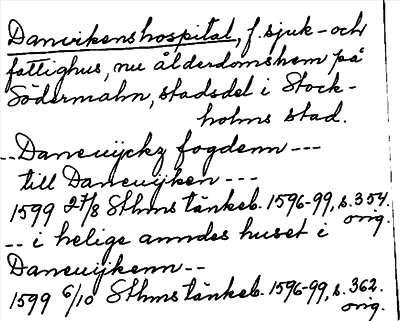 Danvikenshospital, f. sjuk- och
fattighus, nu ålderdomshem på
Södermalm, stadsdel i Stock-
holms stad.
--Danewijckz fogdenn ---
till Danewijken ---
1599 27/8 Sthms tänkeb. 1596-99, s. 354.
orig.
-- i helige anndes huset i
Danewijkenn --
1599 6/10 Sthms tänkeb. 1596-99, s. 362.
orig.